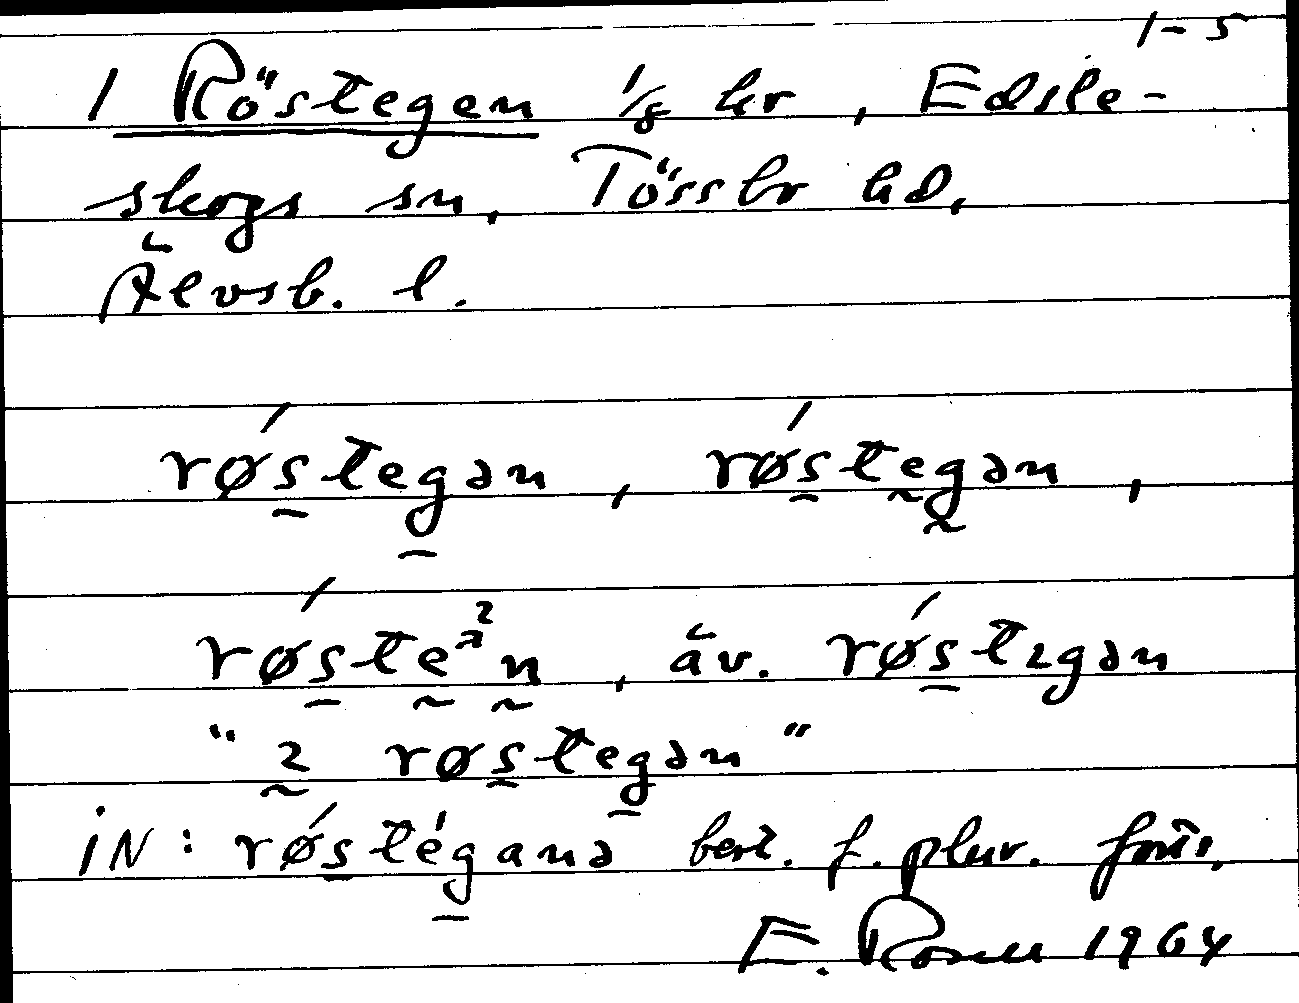 1-5
1 Röstegen 1/8 hr, Edsle-
skogs sn, Tössbo hd,
Älvsb. l.
røstegən, røstegən,
røsteən, äv. røstɩgən
"ɩ røstegən"
iN: røstéganə best. f. plur.
E. Rosell 1964